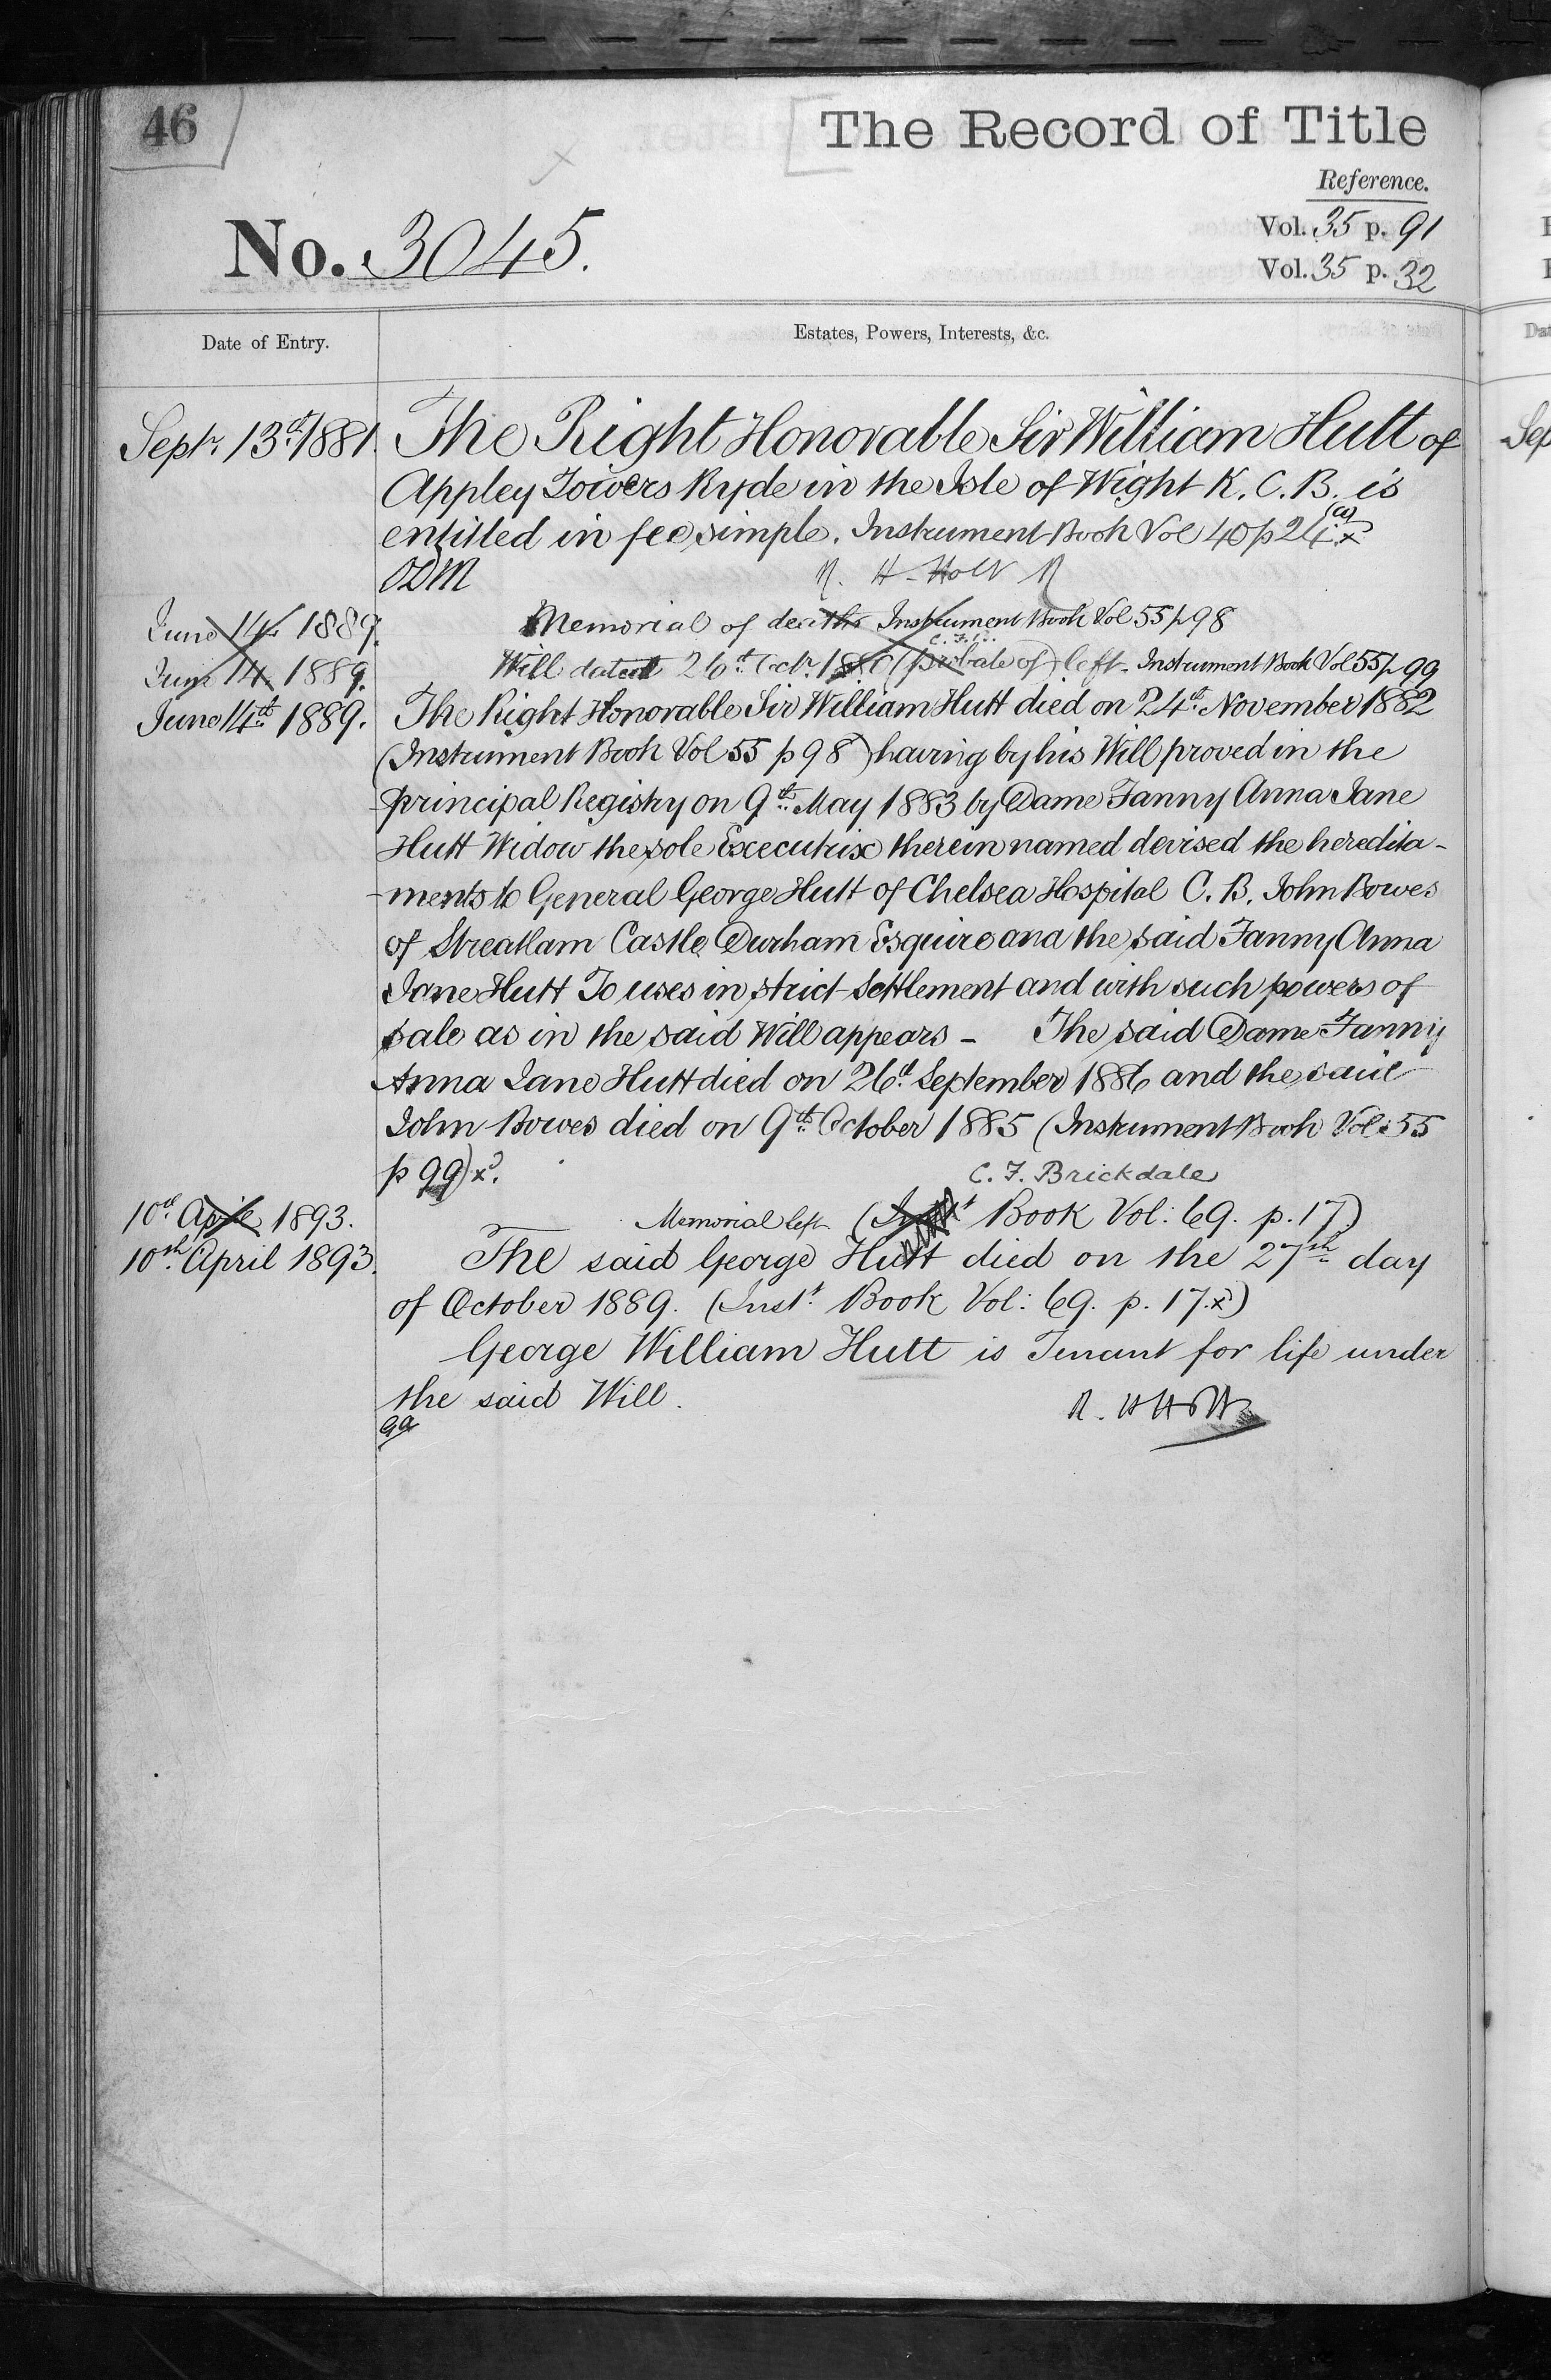 46
The Record of Title
Reference.
No. 3045.
Vol. 35 p. 91
Vol. 35 p. 32
Date of Entry.
Estates, Powers, Interests, &c.
Septr. 13th 1881. The Right Honorable Sir William Hutt of
Appley Towers Ryde in the Isle of Wight K. C. B. is
entitled in fee simple. Instrument Book Vol 40 p 24 (a) x
ODM R. H. Holt R
June 14 1889. Memorial of deaths Instrument Book Vol 55 p 98
C. F. B.
June 14 1889. Will dated 26th Octr. 1880 (probate of) left. Instrument Book Vol 55 p 99
June 14th 1889. The Right Honorable Sir William Hutt died on 24th November 1882
(Instrument Book Vol 55 p 98) having by his Will proved in the
principal Registry on 9th May 1883 by Dame Fanny Anna Jane
Hutt Widow the sole Executrix therein named devised the heredita-
-ments to General George Hutt of Chelsea Hospital C. B. John Bowes
of Streatlam Castle Durham Esquire and the said Fanny Anna
Jane Hutt To uses in strict Settlement and with such powers of
sale as in the said Will appears - The said Dame Fanny
Anna Jane Hutt died on 26th September 1886 and the said
John Bowes died on 9th October 1885 (Instrument Book Vol: 55
p 99) x. C. F. Brickdale
10th April 1893. Memorial left (Inst Book Vol: 69. p. 17)
10th April 1893. The said George Hutt died on the 27th day
of October 1889. (Inst. Book Vol: 69. p. 17. x)
George William Hutt is Tenant for life under
the said Will. R. H Holt